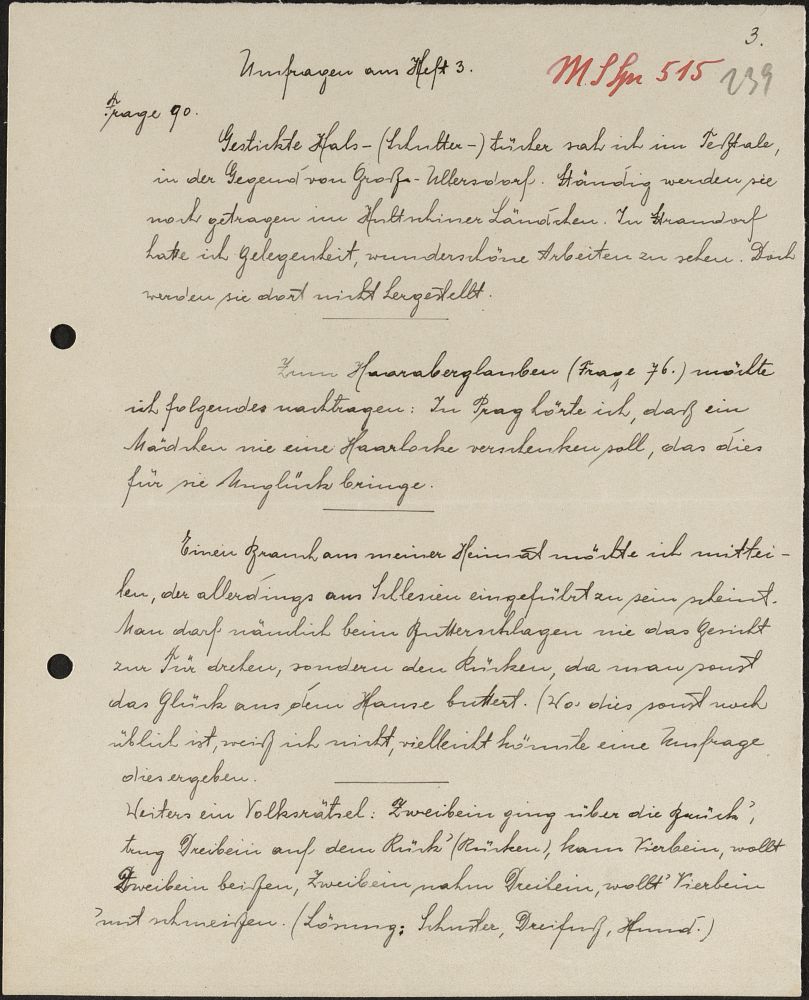 3.
Umfragen aus Heft 3.
MSSpr 515
239
Frage 90.
Gestickte Hals-(Schulter-)tücher sah ich im Teßtale,
in der Gegend von Groß-Ullersdorf. Ständig werden sie
noch getragen im Hultschiner Ländchen. In Strandorf
hatte ich Gelegenheit, wunderschöne Arbeiten zu sehen. Doch
werden sie dort nicht hergestellt.
Zum Haaraberglauben (Frage 76.) möchte
ich folgendes nachtragen: In Prag hörte ich, daß ein
Mädchen nie eine Haarlocke verschenken soll, das dies
für sie Unglück bringe.
Einen Brauch aus meiner Heimat möchte ich mittei-
len, der allerdings aus Schlesien eingeführt zu sein scheint.
Man darf nämlich beim Butterschlagen nie das Gesicht
zur Tür drehen, sondern den Rücken, da man sonst
das Glück aus dem Hause buttert. (Wo dies sonst noch
üblich ist, weiß ich nicht, vielleicht könnte eine Umfrage
dies ergeben.
Weiters ein Volksrätsel: Zweibein ging über die Brück',
trug Dreibein auf dem Rück' (Rücken), kam Vierbein, wollt
Zweibein beißen, Zweibein nahm Dreibein, wollt' Vierbein
mit schmeißen. (Lösung: Schuster, Dreifuß, Hund.)